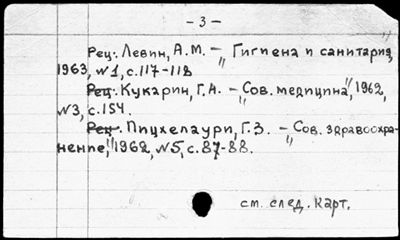 - 3 -
Рец.: Левин, А.М. — "Гигиена и санитария",
1963, №1, с.117-118
Рец.: Кукарин, Г.А. — "Сов. медицина", 1962,
№3, с.154.
Рец.: Пицхелаури, Г.З. — "Сов. здравоохра-
нение", 1962, №5, с.87-88.
см. след. карт.